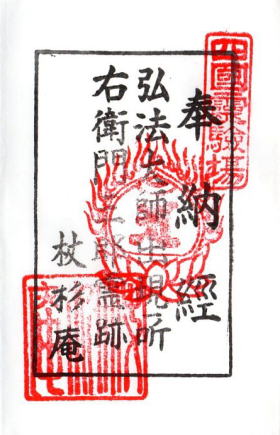 奉納經
弘法大師出現所
右衛門三郎霊跡
杖杉庵
四國霊験場